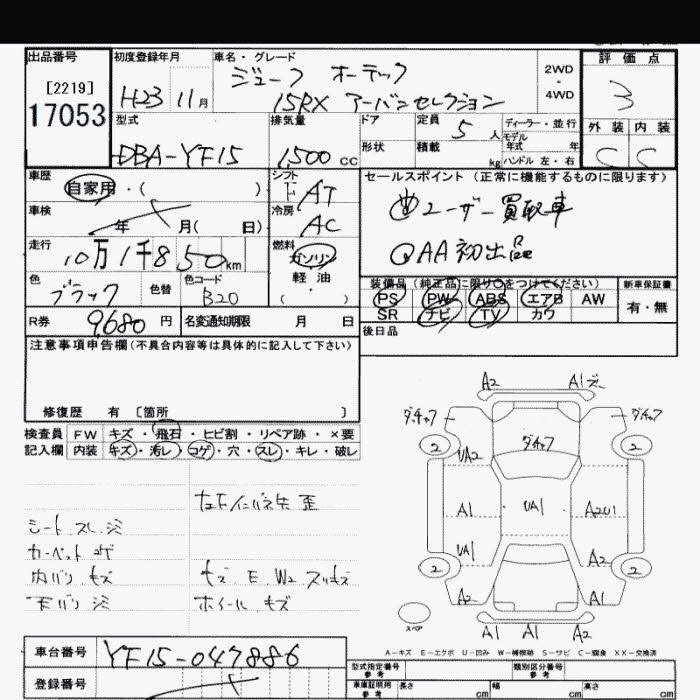 出品番号 初度登録年月 車名・グレード 評価点
[2219] ジューク オーテック 2WD
17053 H23 11月 15RX アーバンセレクション ・4WD 3
型式 排気量 ドア 定員 5人 ディーラー・並行 外装 内装
DBA-YF15 1,500cc 形状 積載 kg モデル年式 年 ハンドル 左・右 C C
車歴 シフト セールスポイント(正常に機能するものに限ります)
自家用・( ) F AT ユーザー買取車
車検 年 月( 日) 冷房 AC AA初出品
走行 燃料
10万1千850km ガソリン
色 色替 色コード 軽油 装備品(純正品に限り○をつけてください) 新車保証書
ブラック B20 ・( ) PS PW ABS エアB AW 有・無
R券 9,680円 名変通知期限 月 日 SR ナビ TV カワ
注意事項申告欄(不具合内容等は具体的に記入して下さい) 後日品
修復歴 有 〔箇所 〕
検査員 FW キズ・飛石・ヒビ割・リペア跡・×要
記入欄 内装 キズ・汚レ・コゲ・穴・スレ・キレ・破レ
シート スレ シミ
カーペット コゲ
内バリ キズ
天バリ シミ
左Fインパネ先 歪
キズ E W2 スリキズ
ホイール キズ
A2 A1
ダチャク ダチャク
2 ダチャク 2
UA2
A1 UA1
UA1 A2
2 2
A2 A1
スペア A1 A1 A2
A-キズ E-エクボ U-凹み W-補修跡 S-サビ C-腐食 XX-交換済
車台番号 YF15-047886
登録番号
型式指定番号 参考 類別区分番号 参考
車庫証明用 参考 長さ cm 幅 cm 高さ cm